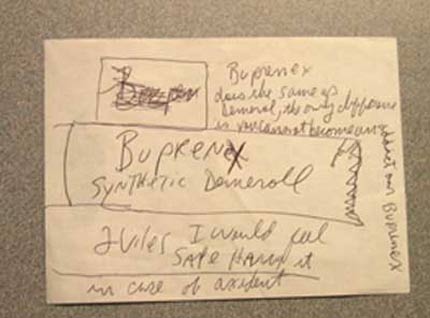 Buprenex
does the same as
Demerol, the only difference
is you cannot become an
addict on Buprenex
BUPRENEX
SYNTHETIC Demeroll
2 Viles I would feel
SAFE HAVING it
in case of axident